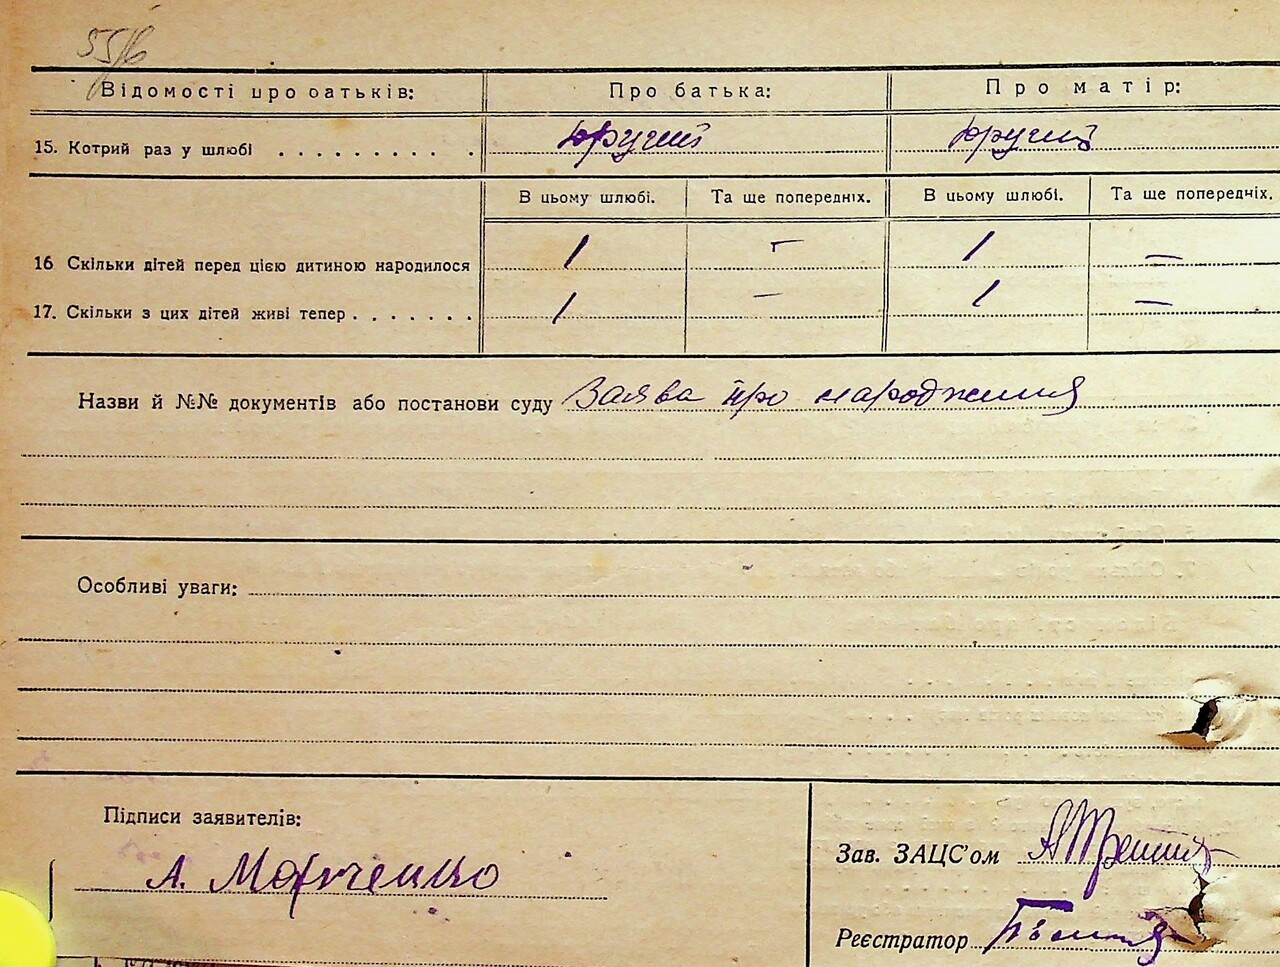 55/6
Відомості про батьків: Про батька: Про матір:
15. Котрий раз у шлюбі . . . . . . . . . . другий другий
В цьому шлюбі. Та ще попередніх. В цьому шлюбі. Та ще попередніх.
16 Скільки дітей перед цією дитиною народилося 1 – 1 –
17. Скільки з цих дітей живі тепер . . . . . . . 1 – 1 –
Назви й №№ документів або постанови суду Заява про народження
Особливі уваги:
Підписи заявителів:
А. Марченко
Зав. ЗАЦС'ом
Реєстратор